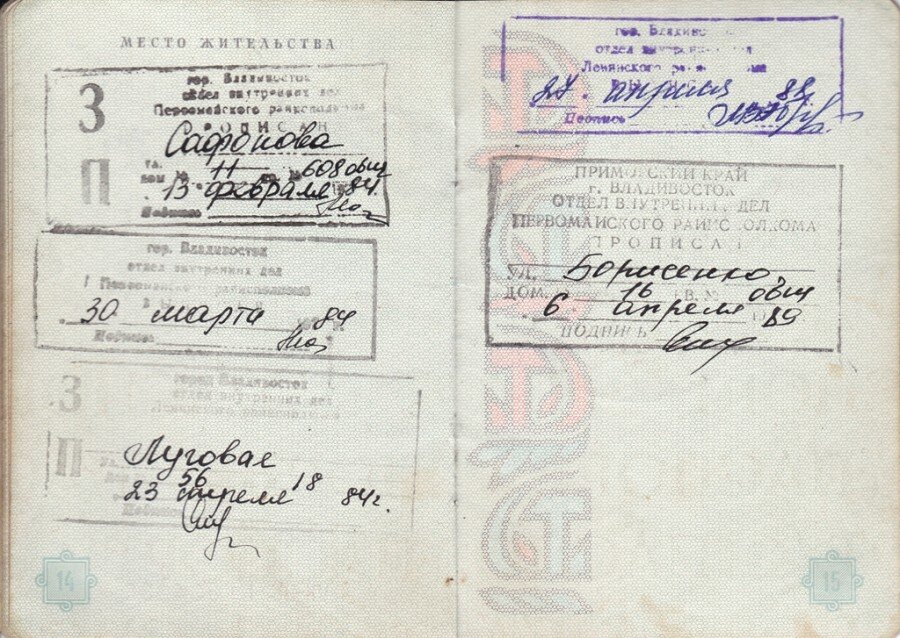 МЕСТО ЖИТЕЛЬСТВА
З
П
гор. Владивосток
отдел внутренних дел
Первомайского райисполкома
ПРОПИСАН
Сафонова
дом № 11 608 общ
13 февраля 84.
Подпись
гор. Владивосток
отдел внутренних дел
Первомайского райисполкома
30 марта 1984 г.
Подпись
З
П
город Владивосток
отдел внутренних дел
Ленинского райисполкома
Ул. Луговая
56 18
23 апреля 84г.
Подпись
14
гор. Владивосток
отдел внутренних дел
Ленинского
27. апреля 88
Подпись
ПРИМОРСКИЙ КРАЙ
г. ВЛАДИВОСТОК
ОТДЕЛ ВНУТРЕННИХ ДЕЛ
ПЕРВОМАЙСКОГО РАЙИСПОЛКОМА
ПРОПИСАН
УЛ. Борисенко,
ДОМ. 16 КВ. общ
6 апреля 1989
ПОДПИСЬ
15